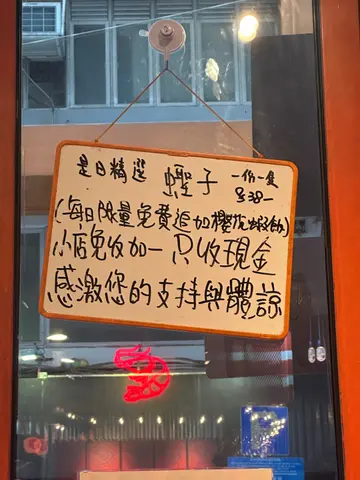 是日精選 蟶子 一份一隻
$38-
(每日限量免費追加櫻花蝦飯)
小店免收加一 只收現金
感激您的支持與體諒